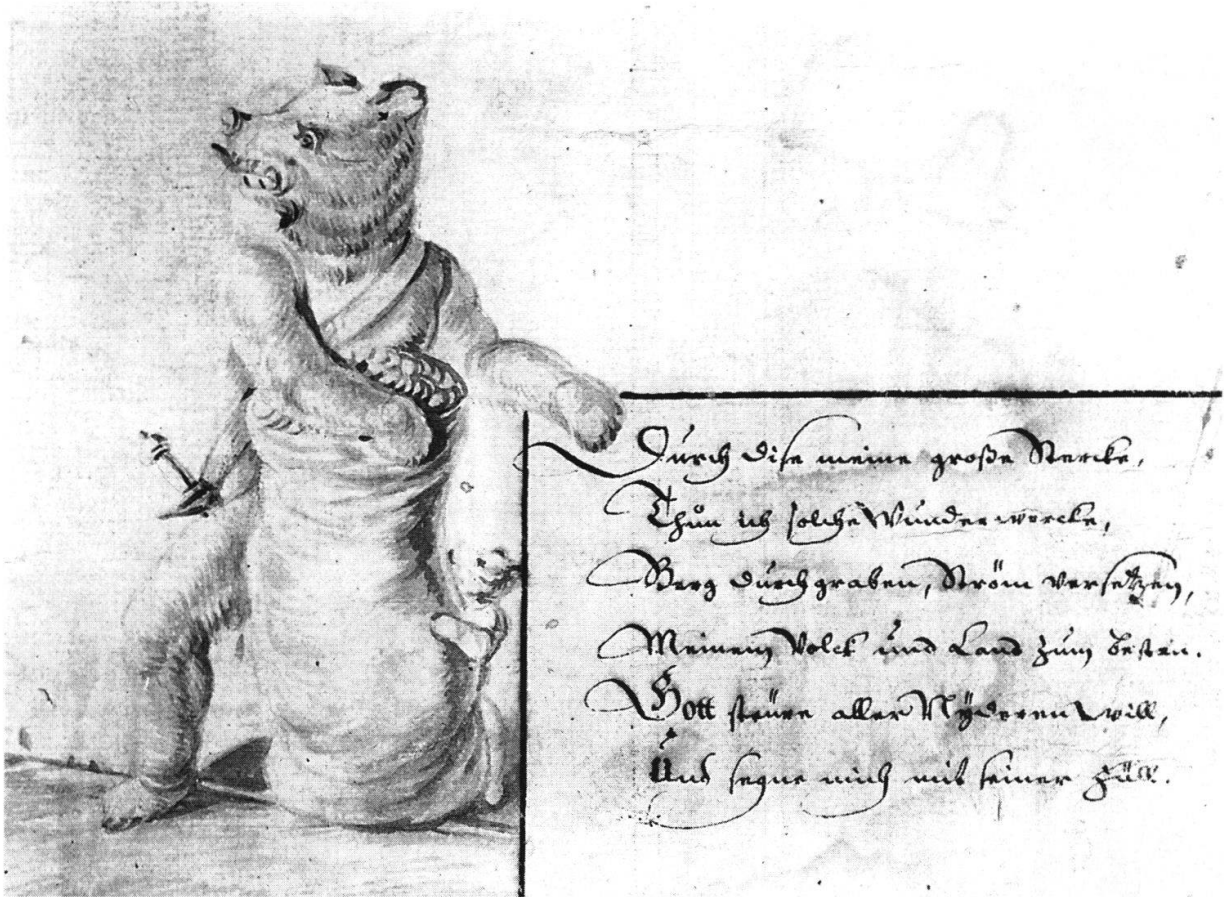 Durch dise meine große Stercke,
Thun ich solche Wunderwercke,
Berg durchgraben, Ström versetzen,
Meinem Volck und Land zum besten.
Gott steüre aller Nyderen will,
Und segne mich mit seiner Füll.